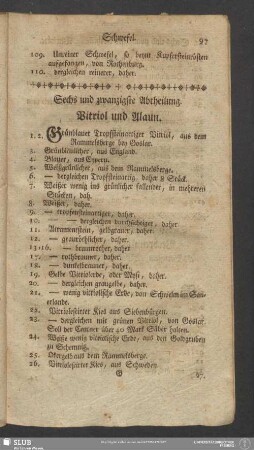 Schwefel. 97
109. Unreiner Schwefel, so beym Kupfersteinrösten
aufgefangen, von Rothenburg.
110. — dergleichen reinerer, daher.
Sechs und zwanzigste Abtheilung.
Vitriol und Alaun.
1. 2. Grünblauer Tropfsteinartiger Vitriol, aus dem
Rammelsberge bey Goslar.
3. Grünbläulicher, aus England.
4. Blauer, aus Cypern.
5. Weißgrünlicher, aus dem Rammelsberge.
6. — dergleichen Tropfsteinartig, daher 8 Stück.
7. Weißer wenig ins grünliche fallender, in mehreren
Stücken, dah.
8. Weißer, daher.
9. — tropfsteinartiger, daher.
10. — — dergleichen durchsichtiger, daher
11. Atramenstein, gelbgrauer, daher.
12. — graurötlicher, daher.
13-16. — braunrother, daher
17. — rothbrauner, daher.
18. — dunkelbrauner, daher.
19. Gelbe Vitriolerde, oder Misy, daher.
20. — dergleichen graugelbe, daher.
21. — wenig vitriolische Erde, von Schwelm im Sau-
erlande.
22. Vitriolesirter Kies aus Siebenbürgen.
23. — dergleichen mit grünen Vitriol, von Goslar.
Soll der Centner über 40 Mark Silber halten.
24. Weiße wenig vitriolische Erde, aus den Goldgruben
zu Schemnitz.
25. Okergelb aus dem Rammelsberge.
26. Vitriolesirter Kies, aus Schweden.
G 27.